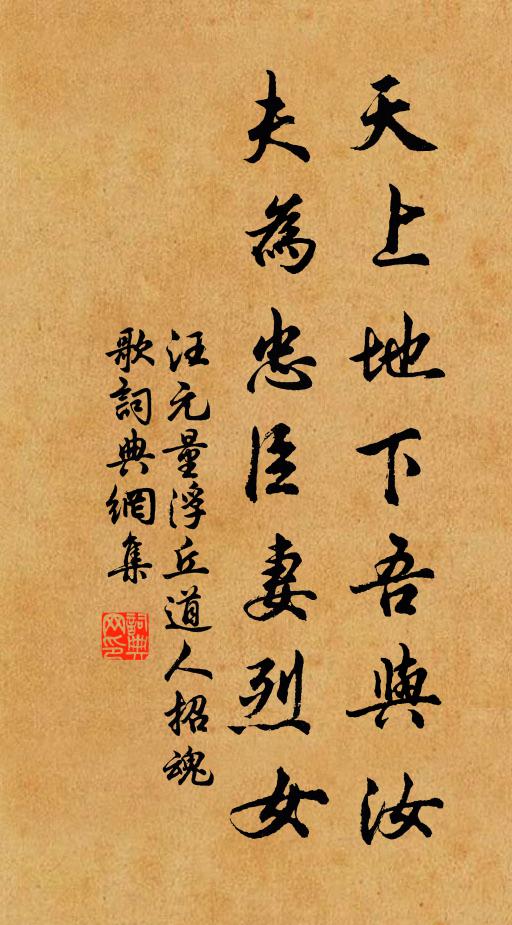 天上地下吾與汝
夫為忠臣妻烈女
汪元量浮丘道人招魂
歌詞典網集
詞典网印